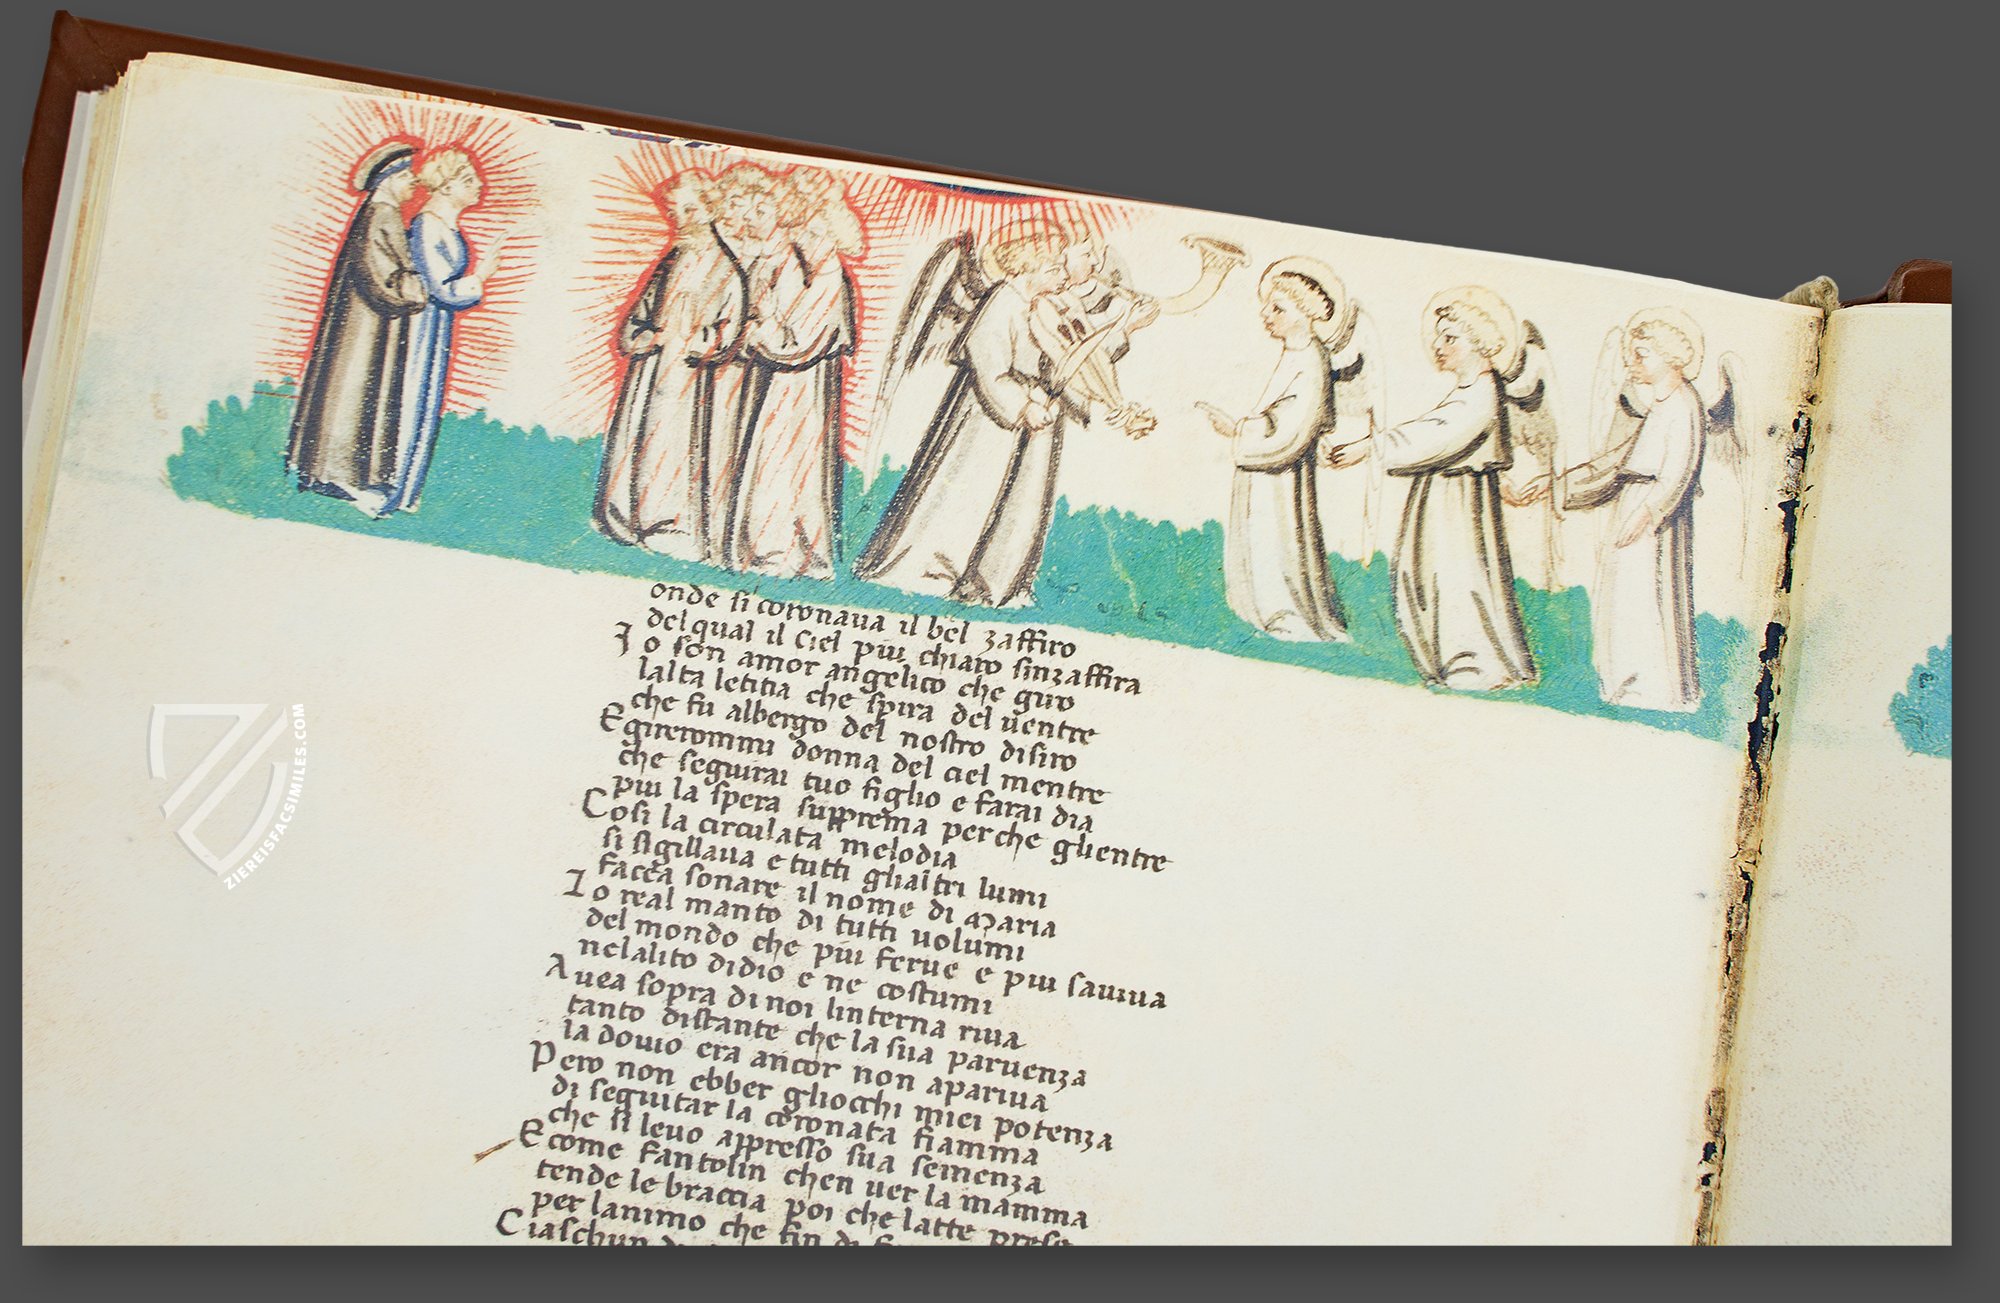 onde si coronaua il bel zaffiro
del qual il ciel piu chiaro sinzaffira
Io son amor angelico che giro
lalta letitia che spira del uentre
che fu albergo del nostro disiro
E girerommi donna del ciel mentre
che seguirai tuo figlio e farai dia
piu la spera supprema perche glientre
Cosi la circulata melodia
si sigillaua e tutti glialtri lumi
facea sonare il nome di Maria
Io real manto di tutti uolumi
del mondo che piu ferue e piu sauiua
nelalito didio e ne costumi
Auea sopra di noi linterna riua
tanto distante che la sua paruenza
la douio era ancor non apariua
Pero non ebber gliocchi miei potenza
di seguitar la coronata fiamma
che si leuo appresso sua semenza
E come fantolin chen uer la mamma
tende le braccia poi che latte prese
per lanimo che fin di
Ciaschun
ZIEREISFACSIMILES.COM